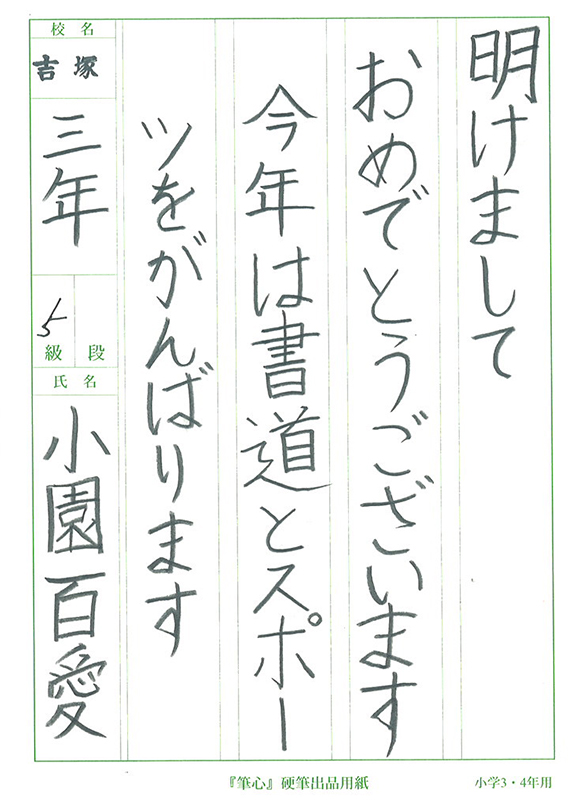 明けまして
おめでとうございます
今年は書道とスポー
ツをがんばります
校名
吉塚
三年
5
級 段
氏名
小園百愛
『筆心』硬筆出品用紙
小学3・4年用